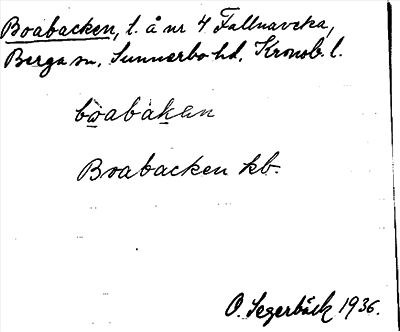 Boabacken, l. å nr 4 Fallnaveka,
Berga sn, Sunnerbo hd, Kronob. l.
bòabàkan
Boabacken kb.
O. Segerbäck 1936.